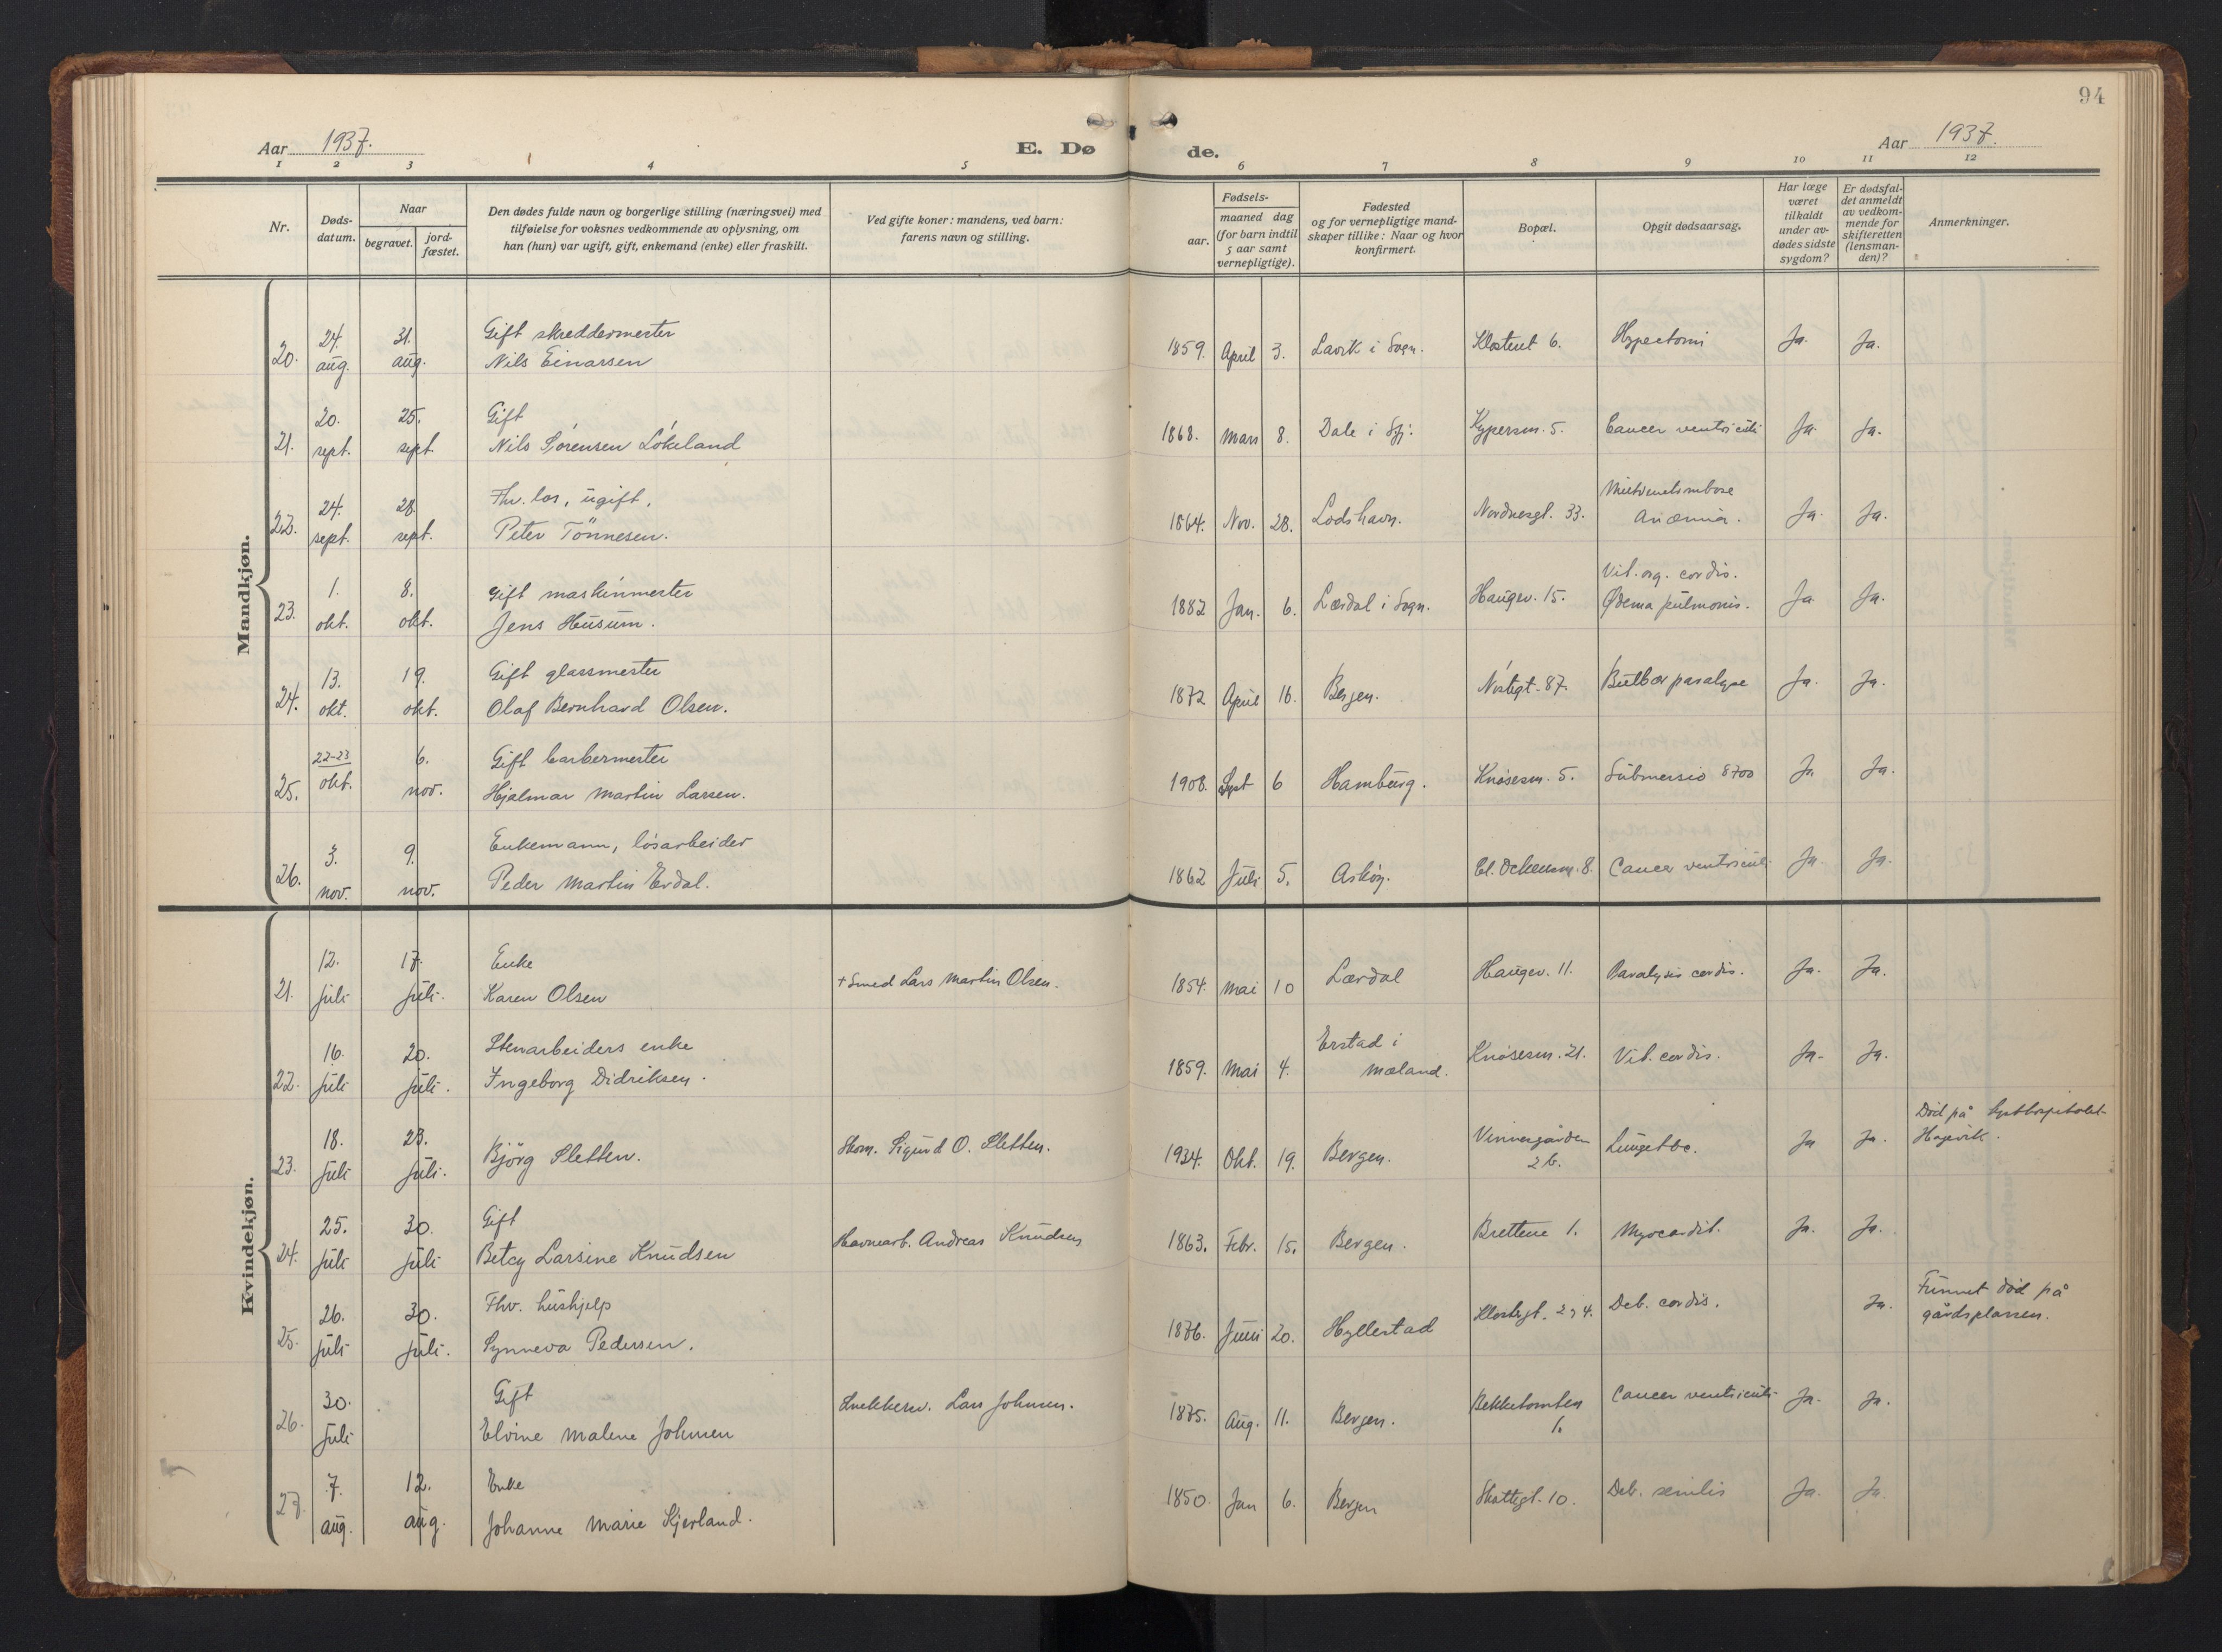 94
Aar 1937.
E. Døde.
Aar 1937.
1 2 3 4 5 6 7 8 9 10 11 12
Nr.
Døds-
datum.
Naar
begravet.
jord-
fæstet.
Den dødes fulde navn og borgerlige stilling (næringsvei) med
tilføielse for voksnes vedkommende av oplysning, om
han (hun) var ugift, gift, enkemand (enke) eller fraskilt.
Ved gifte koner: mandens, ved barn:
farens navn og stilling.
Fødsels-
aar.
maaned dag
(for barn indtil
5 aar samt
vernepligtige).
Fødested
og for vernepligtige mand-
skaper tillike: Naar og hvor
konfirmert.
Bopæl.
Opgit dødsaarsag.
Har læge
været
tilkaldt
under av-
dødes sidste
sygdom?
Er dødsfal-
det anmeldt
av vedkom-
mende for
skifteretten
(lensman-
den)?
Anmerkninger.
Mandkjøn.
20. 24. aug. 31. aug. Gift skreddermester
Nils Einarsen
1859. April 3. Lavik i Sogn. Klostert 6. Ja. Ja.
21. 20. sept. 25. sept. Gift
Nils Sørensen Løkeland
1868. Mars 8. Dale i Sfj. Kypersm. 5. Cancer ventriculi Ja. Ja.
22. 24. sept. 28. sept. Fhv. los, ugift.
Peter Tönnesen.
1864. Nov. 28. Lodshavn. Nordnesgt. 33. Anæmia. Ja. Ja.
23. 1. okt. 8. okt. Gift maskinmester
Jens Husum.
1882 Jan. 6. Lærdal i Sogn. Haugev. 15. Vit. org. cordis.
Ødema pulmonis. Ja. Ja.
24. 13. okt. 19. okt. Gift glassmester
Olaf Bernhard Olsen.
1872 April 16. Bergen. Nøstegt. 87. Bulbærparalyse Ja. Ja.
25. 22-23 okt. 6. nov. Gift barbermester
Hjalmar Martin Larsen.
1908. Sept 6 Hamburg. Knøsesm. 5. Submersio 8700 Ja Ja.
26. 3. nov. 9. nov. Enkemann, løsarbeider
Peder Martin Erdal.
1862 Juli 5. Askøy. Cancer ventriculi Ja. Ja.
Kvindekjøn.
21. 12. juli 17. juli. Enke
Karen Olsen
+ Smed Lars Martin Olsen.
1854. Mai 10 Lærdal Haugev. 11. Paralysis cordis. Ja. Ja.
22. 16. juli 20. juli. Stenarbeiders enke
Ingeborg Didriksen.
1859. Mai 4. Erstad i
Mæland. Knøsesm. 21. Vit. cordis. Ja. Ja.
23. 18. juli 23. juli. Björg Sletten.
Skom. Sigurd O. Sletten.
1934. Okt. 19. Bergen. Vinnergården
2 b. Lungetbc. Ja Ja. Död på Kysthospitalet
Hagevik.
24. 25. juli 30. juli Gift
Betcy Larsine Knudsen
Havnearb. Andreas Knudsen
1863. Febr. 15. Bergen. Brettene 1. Myocardit. Ja. Ja.
25. 26. juli 30. juli. Fhv. hushjelp
Synneva Pedersen.
1876. Juni 20. Hyllestad Deb. cordis. Ja. Funnet död på
gårdsplassen.
26. 30. juli Gift
Elvine Malene Johnsen
Snekkersv. Lars Johnsen.
1875. Aug. 11. Bergen. Bekketomten
1. Cancer ventriculi Ja. Ja.
27. 7. aug. 12. aug. Enke
Johanne Marie Kjerland.
1850. Jan 6. Bergen Skottegt. 10. Deb. senilis Ja. Ja.